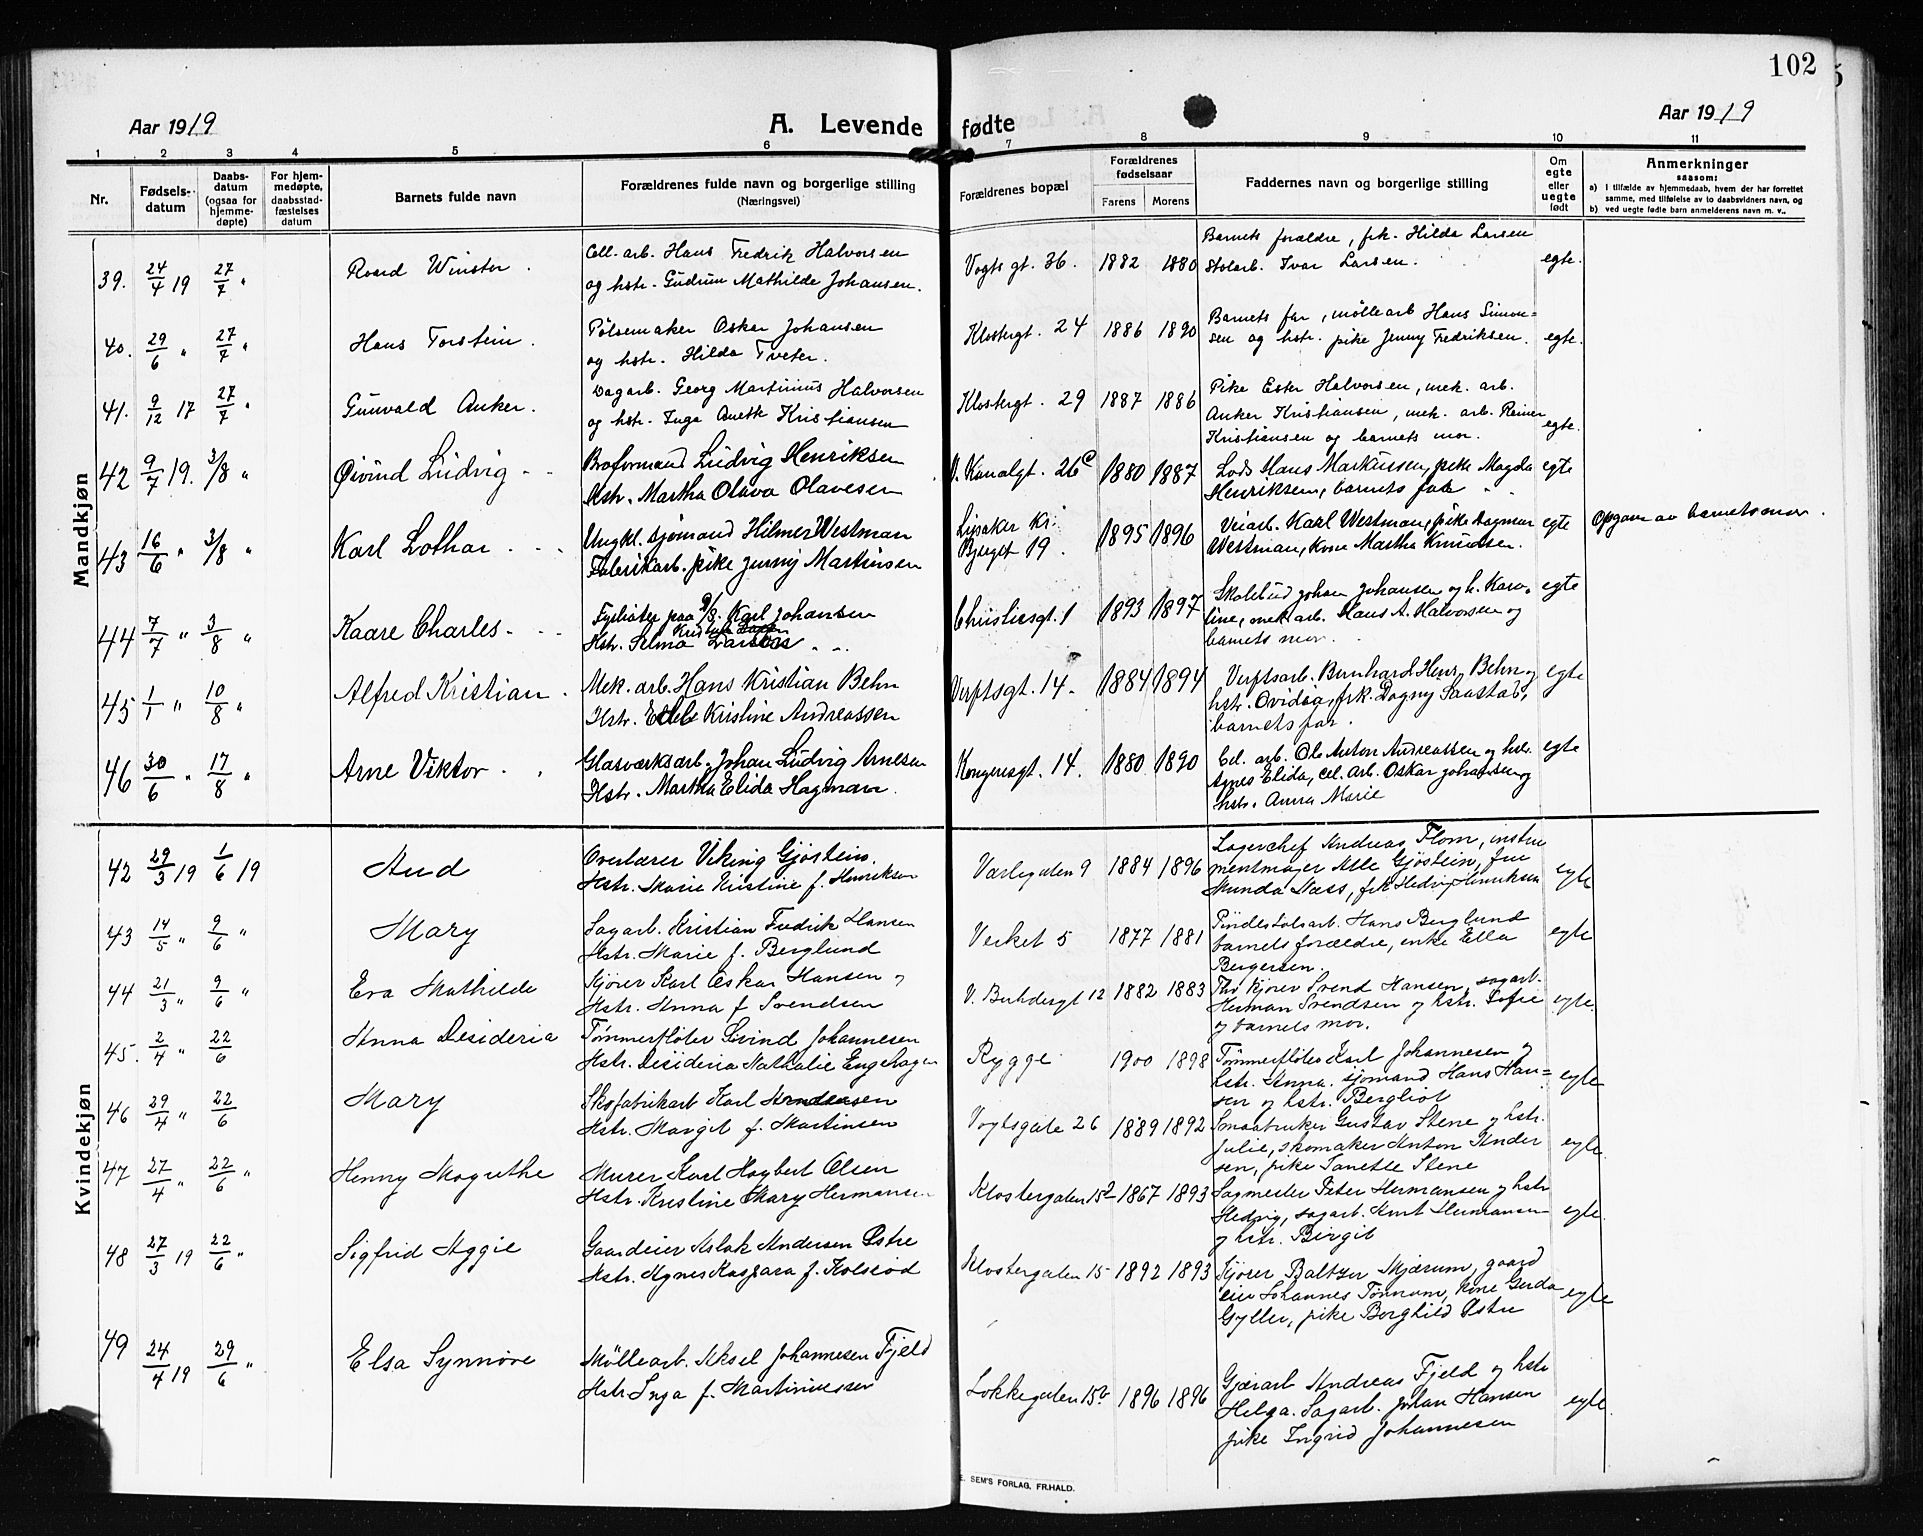 102
Aar 1919
A. Levende fødte
Aar 1919
1 2 3 4 5 6 7 8 9 10 11
Nr.
Fødsels-
datum
Daabs-
datum
(ogsaa for
hjemme-
døpte)
For hjem-
medøpte,
daabsstad-
fæstelses
datum
Barnets fulde navn
Forældrenes fulde navn og borgerlige stilling
(Næringsvei)
Forældrenes bopæl
Forældrenes
fødselsaar
Farens Morens
Faddernes navn og borgerlige stilling
Om
egte
eller
uegte
født
Anmerkninger
saasom:
a) I tilfælde av hjemmedaab, hvem der har forrettet
samme, med tilføielse av to daabsvidners navn, og
b) ved uegte fødte barn anmelderens navn m. v.
Mandkjøn
39. 24/4 19 27/7 " Roard Winstor. Cell. arb. Hans Fredrik Halvorsen
og hstr. Gudrun Mathilde Johansen. Vogts gt. 36. 1882 1880
Barnets forældre, frk. Hilda Larsen
Stolarb. Ivar Larsen. egte.
40. 29/6 " 27/7 " Hans Torstein. Pølsemaker Oskar Johansen
og hstr. Hilda Tveter. Klostergt. 24 1886 1890
Barnets far, møllearb Hans Simon=
sen og hstr. pike Jenny Fredriksen. egte.
41. 9/12 17 27/7 " Gunvald Anker. Dagarb. Georg Martinius Halvorsen
og hstr. Inga Anette Kristiansen Klostergt. 29 1887 1886
Pike Ester Halvorsen, mek. arb.
Anker Kristiansen, mek. arb. Reiner
Kristiansen og barnets mor. egte.
42 9/7 19. 3/8 " Øivind Ludvig Broformand Ludvig Henriksen
Hstr. Martha Olava Olavesen V. Kanalgt. 26c 1880 1887
Lods Hans Markussen, pike Magda
Henriksen, barnets far egte
43 16/6 " 3/8 " Karl Lothar Ungkl. sjømand Hilmer Westman
Fabrikarb. pike Jenny Martinsen Lysaker Kr.
Bjerget 19. 1895 1896
Veiarb. Karl Westman, pike Dagmar
Westman, Kone Martha Knudsen. egte Opgave av barnets mor.
44 7/7 " 3/8 " Kaare Charles Fyrbøter paa D/S. Karl Johansen
Hstr. Selma Larsen Christiesgt. 1 1893 1897
Skolebud Johan Johansen og h. Karo-
line, mek arb. Hans A. Halvorsen og
barnets mor. egte
45 1/1 " 10/8 " Alfred Kristian. Mek. arb. Hans Kristian Behn
Hstr. Edel Kristine Andreassen Verftsgt. 14. 1884 1894
Verftsarb. Bernhard Henr. Behn og
hstr. Ovidia, frk. Dagny Saastad,
barnets far. egte
46 30/6 " 17/8 " Arne Viktor Glasværksarb. Johan Ludvig Arnesen
Hstr. Martha Elida Hagman. Kongensgt. 14. 1880 1890
Cel. arb. Ole Anton Andreassen og hstr.
Agnes Elida, cel. arb. Oskar Johansen og
hstr. Anna Marie egte
Kvindekjøn
42 29/3 19 1/6 19 Aud Overlærer Viking Gjøstein.
Hstr. Marie Kristine f. Henriksen Varlegaten 9 1884 1896
Lagerchef Andreas Flom, instru
mentmager Atle Gjøstein, fru
Munda Næss, frk Hedvig Henriksen egte
43 14/5 " 9/6 " Mary Sagarb. Kristian Fredrik Hansen
Hstr. Marie f. Berglund Verket 5 1877 1881
Pindestolsarb. Hans Berglund
barnets forældre, enke Ella
Bergersen. egte
44 21/3 " 9/6 " Eva Mathilde Kjører Karl Oskar Hansen og
Hstr. Anna f Svendsen 12 1882 1883
Thv kjører Svend Hansen, sagarb.
Herman Svendsen og hstr. Sofie
og barnets mor. egte.
45. 2/4 " 22/6 Anna Desideria Tømmerfløter Eivind Johannesen
Hstr. Desideria Nathalie Engehagen Rygge 1900 1898
Tømmerfløter Karl Johannesen og
hstr. Anna. sjømand Hans Han=
sen og hstr. Bergliot egte
46 29/4 " 22/6 Mary Skofabrikarb Karl Andersen
Hstr. Margit f. Martinsen Vogtsgate 26 1889 1892
Smaabruker Gustav Stene og hstr.
Julie, skomaker Anton Ander
sen, pike Janette Stene egte
47 27/4 " 22/6 " Henny Magrethe Murer Karl Hagbert Olsen
Hstr. Kristine Mary Hermansen Klostergaten 15 1867 1893
Sagmester Peter Hermansen og hstr
Hedvig, sagarb. Kurt Hermansen
og hstr. Birgit egte.
48 27/3 19 22/6 " Sigfrid Aggie Gaardeier Aslak Andersen Østre
Hstr. Agnes Kaspara f. Kolsrød Klostergaten 15 1892 1893
Kjører Baltzer Mjærum, gaard
eier Johannes Tønnum, Kone Gerda
Gyller, pike Borghild Østre egte
49 24/4 19 29/6 " Elsa Synnøve Møllearb. Aksel Johannesen Fjeld
Hstr Inga f. Martiniussen Lokkegaten 15b 1896 1896
Gjærarb Andreas Fjeld og hstr
Helga. Sagarb. Johan Hansen
pike Ingrid Johannesen egte.
E. SEM'S FORLAG, FR.HALD.